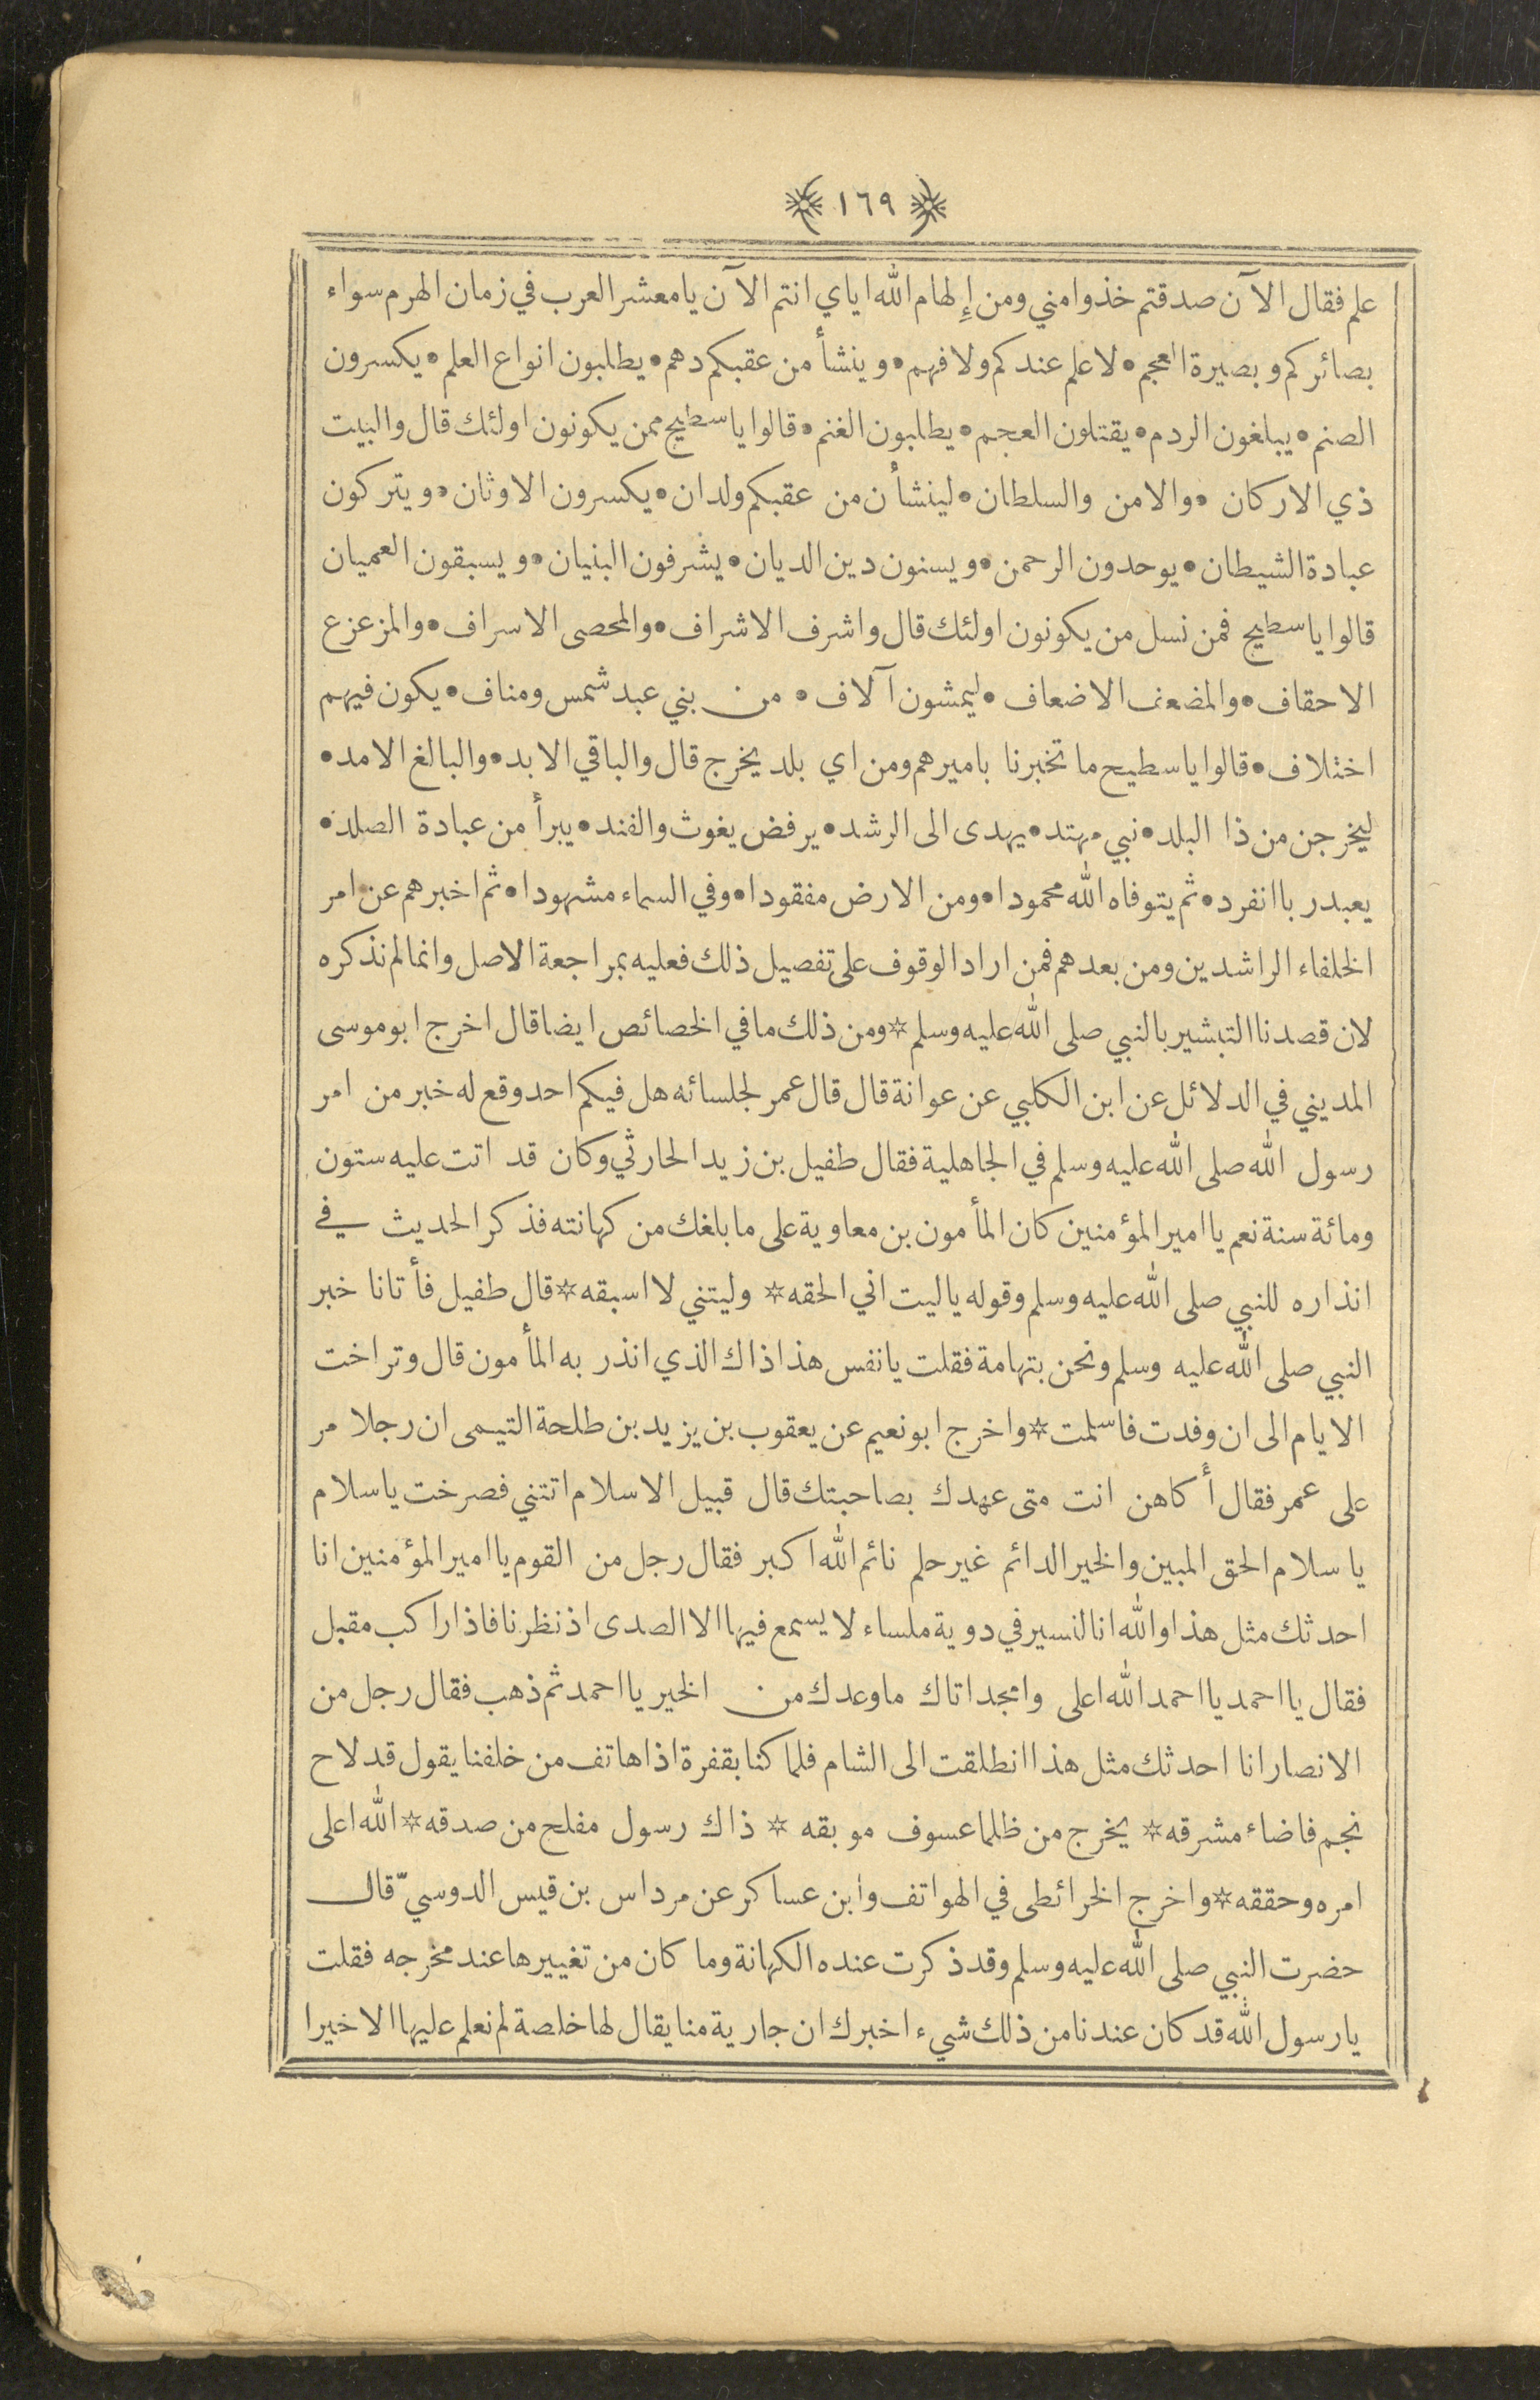 ١٦٩
علم فقال الآن صدقتم خذوا مني ومن إِلهام الله اياي انتم الآن يا معشر العرب في زمان الهرم سواء
بصائركم وبصيرة العجم • لا علم عندكم ولا فهم • وينشأ من عقبكم دهم • يطلبون انواع العلم • يكسرون
الصنم • يبلغون الردم • يقتلون العجم • يطلبون الغنم • قالوا يا سطيح ممن يكونون اولئك قال والبيت
ذي الاركان • والامن والسلطان • لينشأن من عقبكم ولدان • يكسرون الاوثان • ويتركون
عبادة الشيطان • يوحدون الرحمن • ويسنون دين الديان • يشرفون البنيان • ويسبقون العميان
قالوا يا سطيح فمن نسل من يكونون اولئك قال واشرف الاشراف • والمحصى الاسراف • والمزعزع
الاحقاف • والمضعف الاضعاف • ليمشون آلاف • من بني عبد شمس ومناف • يكون فيهم
اختلاف • قالوا يا سطيح ما تخبرنا باميرهم ومن اي بلد يخرج قال والباقي الابد • والبالغ الامد •
ليخرجن من ذا البلد • نبي مهتد • يهدى الى الرشد • يرفض يغوث والفند • يبرأ من عبادة الصلد •
يعبد ربا انفرد • ثم يتوفاه الله محمودا • ومن الارض مفقودا • وفي السماء مشهودا • ثم اخبرهم عن امر
الخلفاء الراشدين ومن بعدهم فمن اراد الوقوف على تفصيل ذلك فعليه بمراجعة الاصل وانما لم نذكره
لان قصدنا التبشير بالنبي صلى الله عليه وسلم * ومن ذلك ما في الخصائص ايضا قال اخرج ابو موسى
المديني في الدلائل عن ابن الكلبي عن عوانة قال قال عمر لجلسائه هل فيكم احد وقع له خبر من امر
رسول الله صلى الله عليه وسلم في الجاهلية فقال طفيل بن زيد الحارثي وكان قد اتت عليه ستون
ومائة سنة نعم يا امير المؤمنين كان المأمون بن معاوية على ما بلغك من كهانته فذكر الحديث في
انذاره للنبي صلى الله عليه وسلم وقوله يا ليت اني الحقه * وليتني لا اسبقه * قال طفيل فأتانا خبر
النبي صلى الله عليه وسلم ونحن بتهامة فقلت يا نفس هذا ذاك الذي انذر به المأمون قال وتراخت
الايام الى ان وفدت فاسلمت * واخرج ابو نعيم عن يعقوب بن يزيد بن طلحة التيمى ان رجلا مر
على عمر فقال أكاهن انت متى عهدك بصاحبتك قال قبيل الاسلام اتتني فصرخت يا سلام
يا سلام الحق المبين والخير الدائم غير حلم نائم الله اكبر فقال رجل من القوم يا امير المؤمنين انا
احدثك مثل هذا والله انا لنسير في دوية ملساء لا يسمع فيها الا الصدى اذ نظرنا فاذا راكب مقبل
فقال يا احمد يا احمد الله اعلى وامجد اتاك ما وعدك من الخير يا احمد ثم ذهب فقال رجل من
الانصار انا احدثك مثل هذا انطلقت الى الشام فلما كنا بقفرة اذا هاتف من خلفنا يقول قد لاح
نجم فاضاء مشرقه * يخرج من ظلما عسوف موبقه * ذاك رسول مفلح من صدقه * الله اعلى
امره وحققه * واخرج الخرائطى في الهواتف وابن عساكر عن مرداس بن قيس الدوسيّ قال
حضرت النبي صلى الله عليه وسلم وقد ذكرت عنده الكهانة وما كان من تغييرها عند مخرجه فقلت
يا رسول الله قد كان عندنا من ذلك شيء اخبرك ان جارية منا يقال لها خلصة لم نعلم عليها الا خيرا